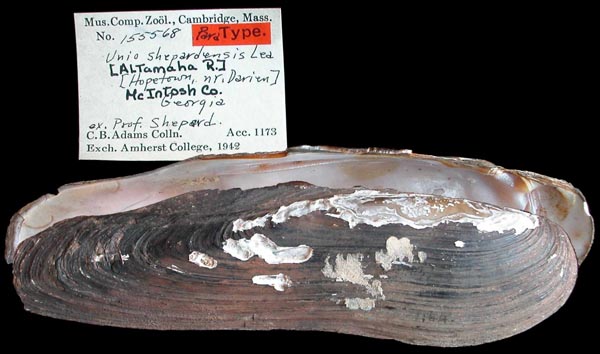 Mus. Comp. Zoöl., Cambridge, Mass.
No. 155568 Para Type.
Unio shepardensis Lea
[Altamaha R.]
[Hopetown, nr. Darien]
McIntosh Co.
Georgia
ex. Prof. Shepard.
C. B. Adams Colln. Acc. 1173
Exch. Amherst College, 1942